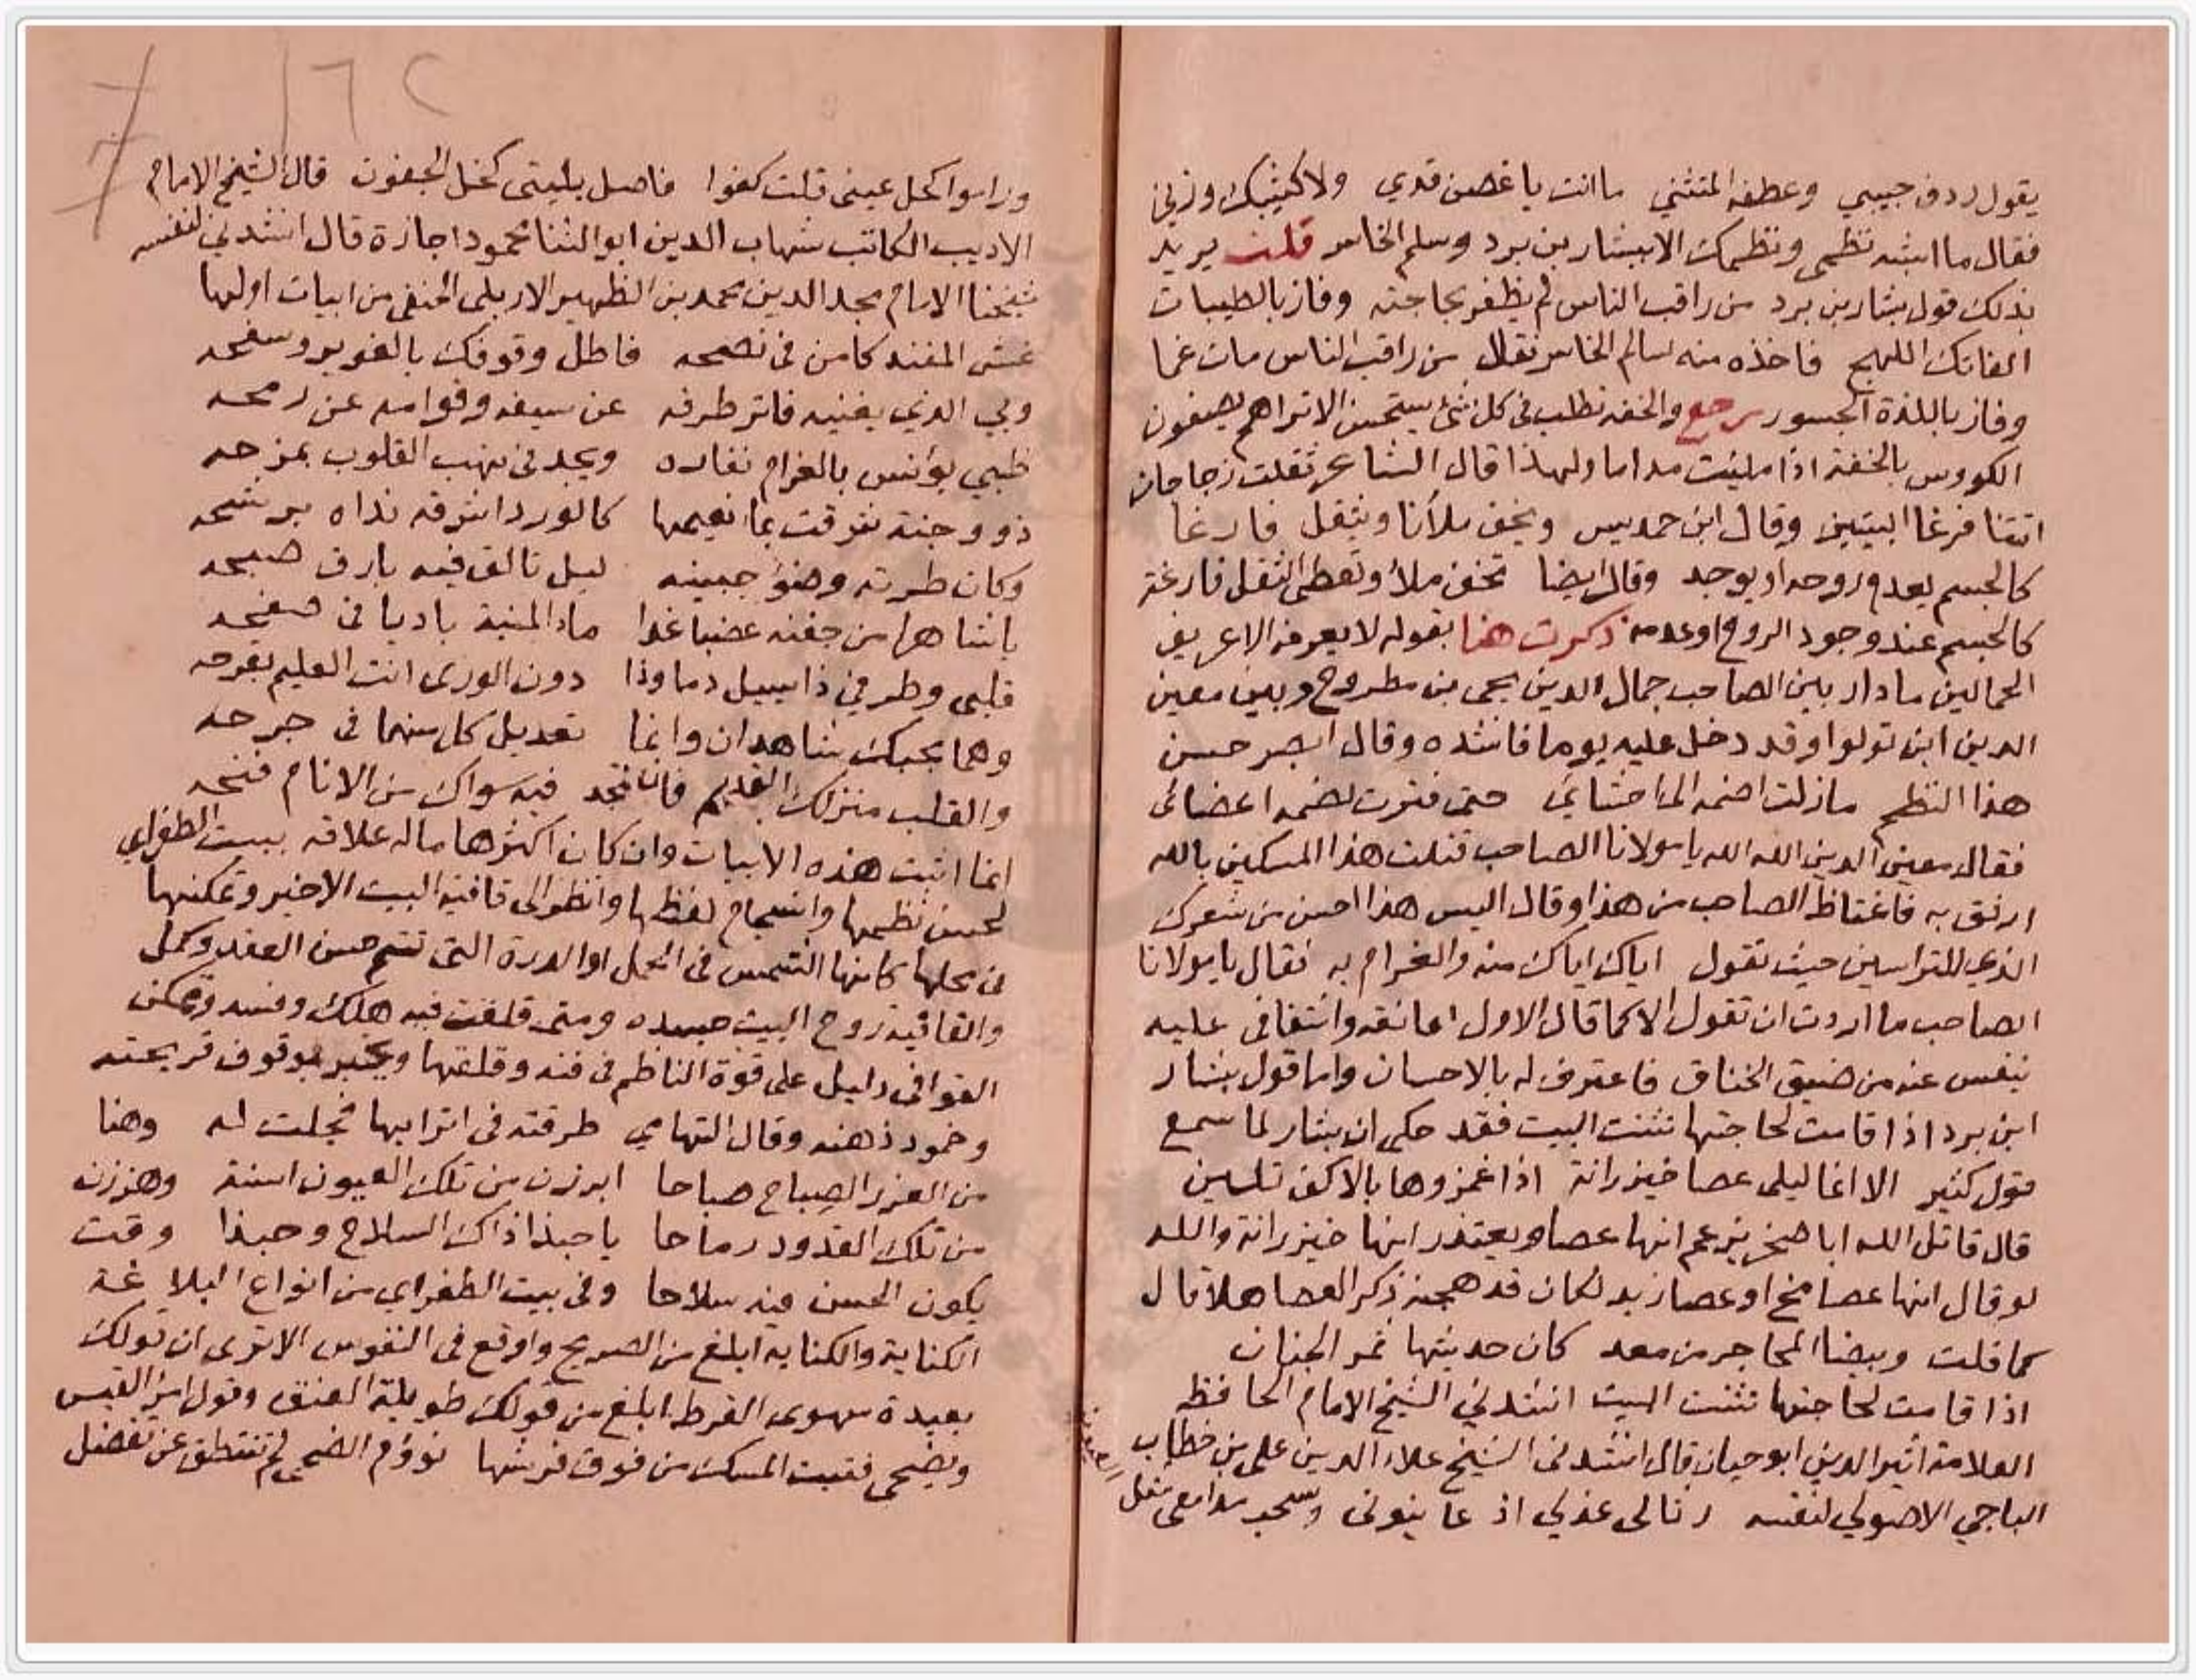 يقول ردف حبيبي وعطفه المتثني ما انت يا غصن قدي ولا كثيبك وزني
فقال ما اشبه نظمي ونظمك الا ببشار بن برد وسلم الخاسر قلت يريد
بذلك قول بشار بن برد من راقب الناس لم يظفر بحاجته وفاز بالطيبات
الفاتك اللهج فاخذه منه سالم الخاسر فقال من راقب الناس مات غما
وفاز باللذة الجسور رجع والخفه تطلب في كل شئ يستحسن الا تراهم يصفون
الكووس بالخفة اذا مليت مداما ولهذا قال الشاعر ثقلت زجاجات
اتتنا فرغا البيتين وقال ابن حمديس ويخف ملآنا ويثقل فارغا
كالجسم يعدم روحه او يوجد وقال ايضا تخف ملأ وتعطى الثقل فارغة
كالجسم عند وجود الروح او عدمه ذكرت هنا بقوله لا يعرفه الا عريف
الحمالين ما دار بين الصاحب جمال الدين يحيى بن مطروح وبين معين
الدين ابن تولوا وقد دخل عليه يوما فانشده وقال ابصر حسن
هذا النظم مازلت اضمه الى احشاي حتى فترت لضمه اعضائى
فقال معين الدين الله الله يا مولانا الصاحب قتلت هذا المسكين بالله
ارفق به فاغتاظ الصاحب من هذا وقال اليس هذا احسن من شعرك
الذي للتراسين حيث تقول اياك اياك منه والغرام به فقال يا مولانا
الصاحب ما اردت ان تقول الا كما قال الاول اعانقه وانتفافى عليه
نيفس عنه من ضيق الخناق فاعترف له بالاحسان واما قول بشار
ابن برد اذا قامت لحاجتها تثنت البيت فقد حكى ان بشار لما سمع
قول كثير الا انما ليلى عصا خيزرانة اذا غمزوها بالاكف تلين
قال قاتل الله ابا صخر يزعم انها عصا ويعتذر انها خيزرانة والله
لو قال انها عصا مخ او عصا زبد لكان قد هجنه ذكر العصا هلا قال
كما قلت وبيضا المحاجر من معد كان حديثها ثمر الجنان
اذا قامت لحاجتها تثنت البيت انشدني الشيخ الامام الحافظ
العلامة اثير الدين ابو حيان قال انشدنى الشيخ علاء الدين على بن خطاب
الباجي الاصولي لنفسه رثا لى عذلي اذ عاينونى وسحب مدامعى مثل
العيون
وراموا كحل عينى قلت كفوا فاصل بليتى كحل الجفون قال الشيخ الامام
الاديب الكاتب شهاب الدين ابو الثنا محمود اجازة قال انشدني لنفسه
شيخنا الامام مجد الدين محمد بن الظهير الاربلى الحنفى من ابيات اولها
غش المفند كامن فى نصحه فاطل وقوفك بالغوير وسفحه
وبي الذي يغنيه فاتر طرفه عن سيفه وقوامه عن رمحه
ظبي يؤنس بالغرام نفاره ويجد فى نهب القلوب بمزحه
ذو وجنة شرقت بما نعيمها كالورد اشرقه نداه برشحه
وكان طرته وضوء جبينه ليل تالق فيه بارق صبحه
يا شاهرا من جفنه عضبا غدا ماء المنية باديا فى صفحه
قلبى وطرفي ذا يسيل دما وذا دون الورى انت العليم بقرحه
وهما بحبك شاهدان وانما تعديل كل منهما فى جرحه
والقلب منزلك القديم فان تجد فيه سواك من الانام فنحه
انما اثبت هذه الابيات وان كان اكثرها ما له علاقة ببيت الطغراي
لحسن نظمها وانسجام لفظها وانظر الى قافية البيت الاخير وتمكنها
فى محلها كانها الشمس فى الحمل او الدرة التى تتم حسن العقد وكمل
والقافية روح البيت جسده ومتى قلقت فيه هلك وفسد وتمكن
القوافى دليل على قوة الناظم فى فنه وقلقها يخبر بوقوف قريحته
وخمود ذهنه وقال التهامي طرقته فى اترابها فجلت له وهنا
من الغرر الصباح صباحا ابرزن من تلك العيون اسنة وهززن
من تلك القدود رماحا يا حبذا ذاك السلاح وحبذا وقت
يكون الحسن فيه سلاحا وفى بيت الطغراى من انواع البلاغة
الكناية والكناية ابلغ من الصريح واوقع فى النفوس الا ترى ان قولك
بعيدة مهوى القرط ابلغ من قولك طويلة العنق وقول امرئ القيس
ويضحى فتيت المسك من فوق فرشها نووم الضحى لم تنتطق عن تفضل